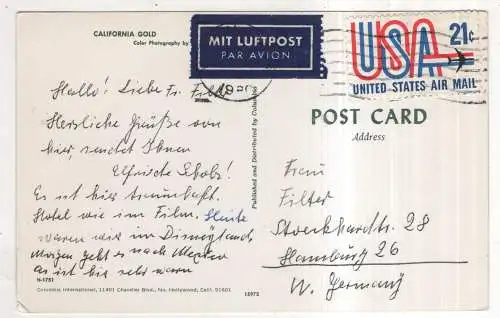 CALIFORNIA GOLD
Color Photography by
MIT LUFTPOST
PAR AVION
USA 21¢
UNITED STATES AIR MAIL
Hallo! Liebe Fr.
Herzliche Grüße von
hier sendet Ihnen
Elfriede
Es ist hier traumhaft.
Hotel wie im Film. Heute
waren wir im Disneyland,
Morgen geht es nach Mexiko
es ist hier sehr warm
N-1751
Columbia International, 11401 Chandler Blvd., No. Hollywood, Calif. 91601
Published and Distributed by Columbia
POST CARD
Address
Frau
Filter
Stockhardtstr. 28
Hamburg 26
W. Germany